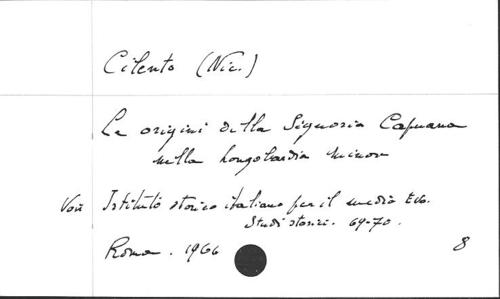 Cilento (Nic.)
Le origini della Signoria Capuana
nella Longobardia minore
Voir Istituto storico italiano per il medio Evo.
Studi storici. 69-70.
Roma. 1966
8